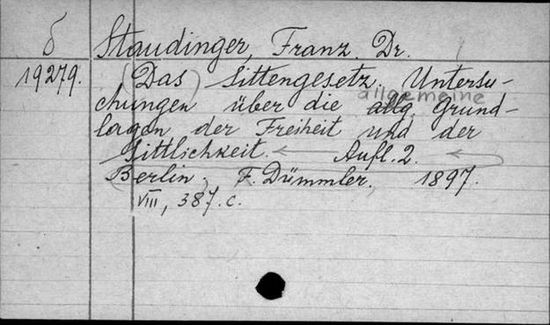 б Staudinger, Franz, Dr.
19279. (Das) Sittengesetz. Untersu-
allgemeine
chungen über die allg. Grund-
lagen der Freiheit und der
Sittlichkeit. Aufl. 2.
Berlin. F. Dümmler. 1897.
VIII, 387. c.